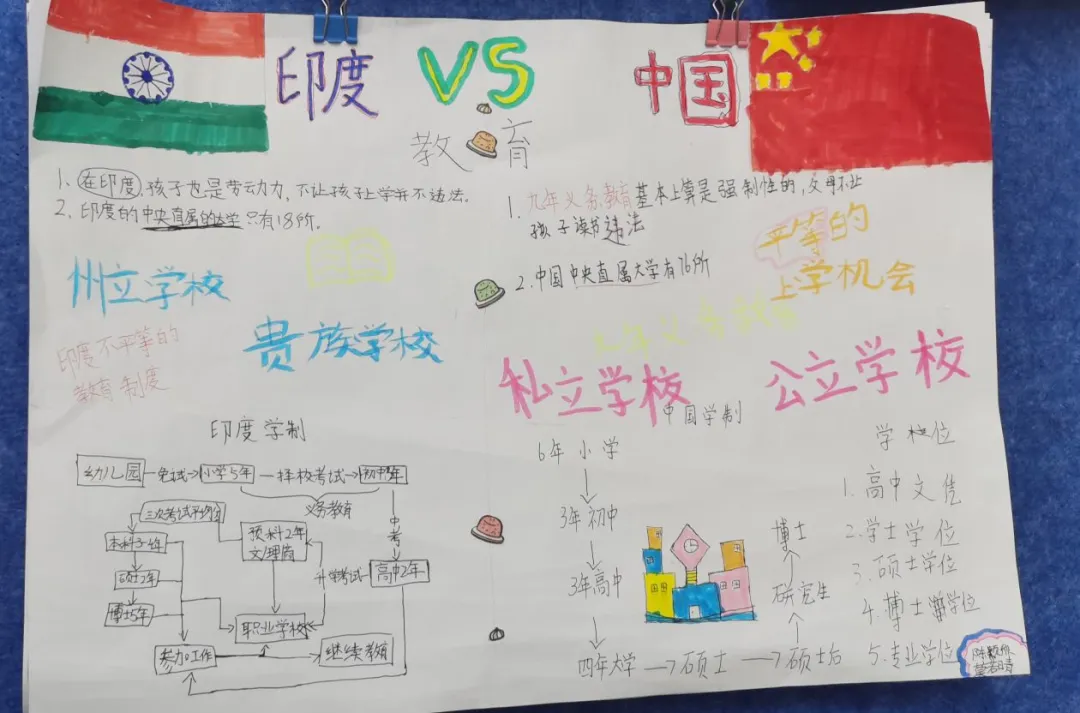 印度 VS 中国
教育
1.在印度,孩子也是劳动力,不让孩子上学并不违法。
2.印度的中央直属的大学只有18所。
州立学校
贵族学校
印度不平等的
教育制度
1.九年义务教育基本上算是强制性的,父母不让
孩子读书违法
2.中国中央直属大学有76所
平等的
上学机会
九年义务教育
私立学校
公立学校
印度学制
幼儿园 免试 小学5年 择校考试 初中5年
义务教育
三次考试平均值
预科2年
文/理商
中考
本科3-4年
升学考试
高中2年
硕士2年
博士5年
职业学校
参加工作
继续教育
中国学制
6年小学
3年初中
3年高中
四年大学
硕士
硕士后
研究生
博士
学校位
1.高中文凭
2.学士学位
3.硕士学位
4.博士学位
5.专业学位